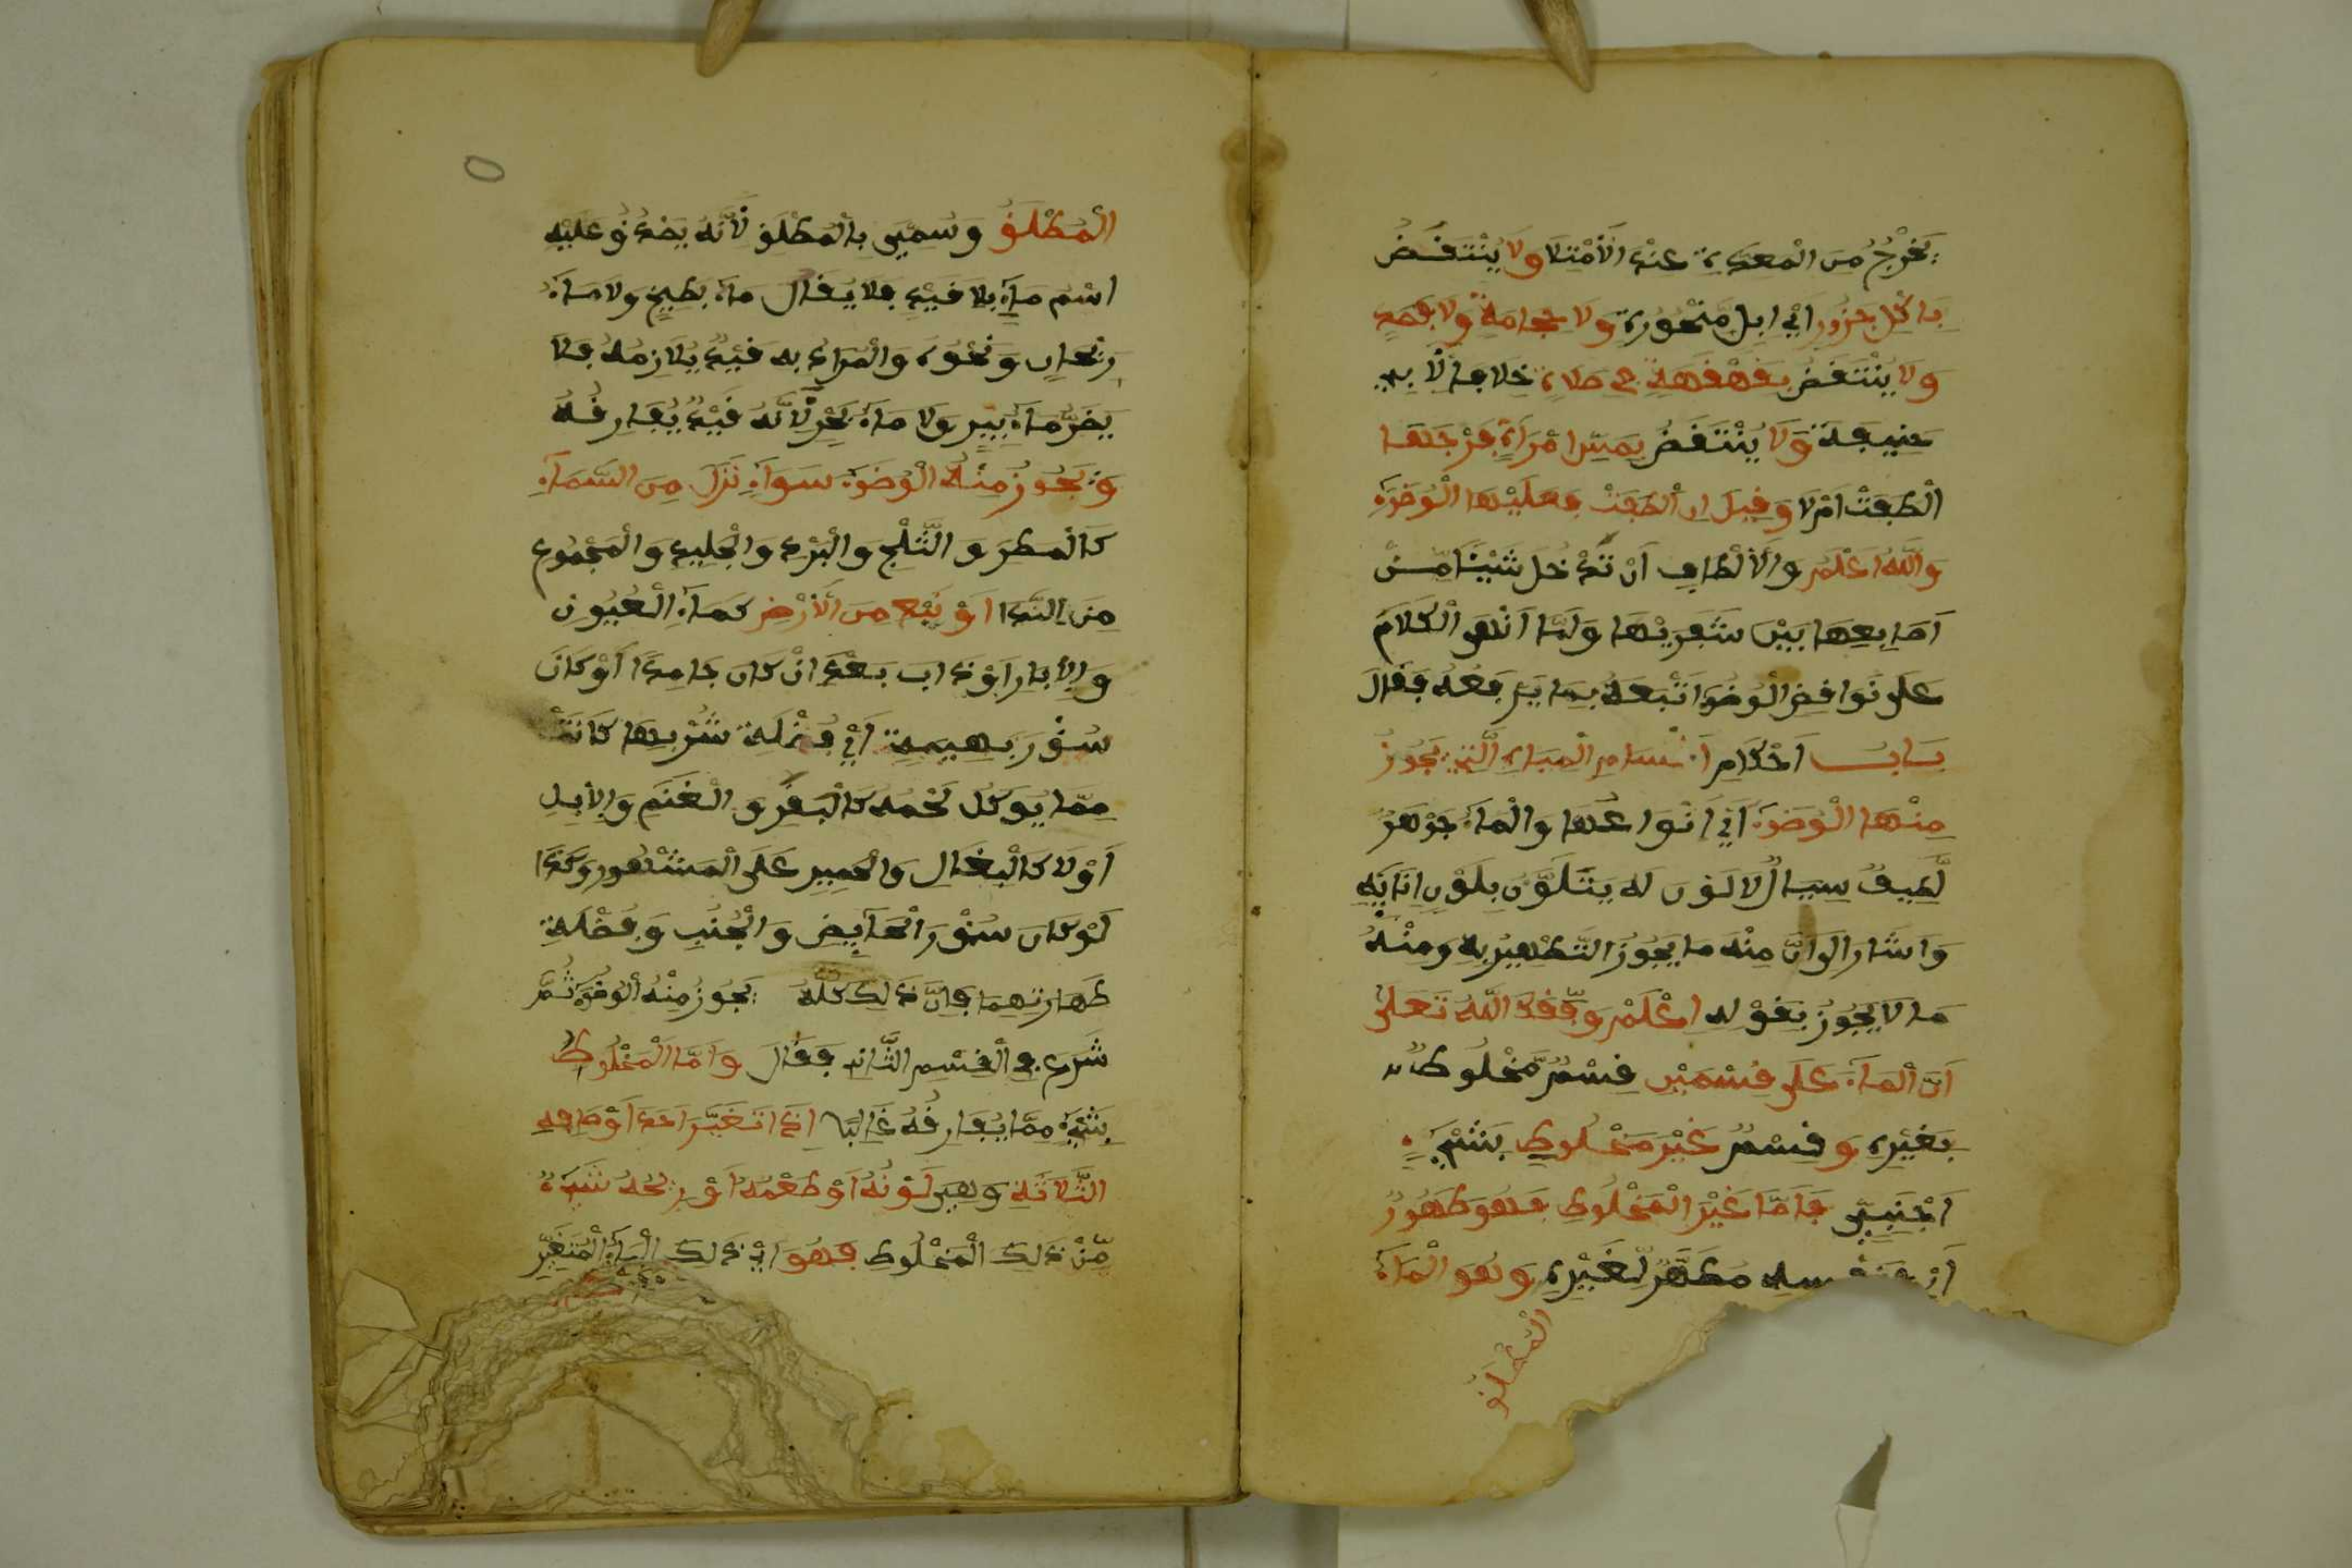 يَخْرُجُ مِنَ الْمَعِدَةِ عِنْدَ الْأَمْتِلَا وَلَا يُنْتَقَضُ
بِأَكْلِ جَزُورٍ اَيْ اِبِلٍ مَنْحُورَةٍ وَلَا حِجَامَةٍ وَلَا بِفَصْدٍ
وَلَا يُنْتَقَضُ بِقَهْقَهَةٍ فِي صَلَاةٍ خِلَافًا لِأَبِي
حَنِيفَةَ وَلَا يُنْتَقَضُ بِمَسِّ امْرَأَةٍ فَرْجَهَا
أَلْطَفَتْ اَمْ لَا وَقِيلَ اِن أَلْطَفَتْ فَعَلَيْهَا الْوُضُوءُ
وَاللَّهُ اَعْلَمُ وَالْأَلْطَافِ اَنْ تُدْخِلَ شَيْئًا مِّنْ
اَصَابِعِهَا بَيْنَ شَفْرَيْهَا وَلَمَّا اَنْهَى الْكَلَامَ
عَلَى نَوَاقِضِ الْوُضُوءِ اَتْبَعَهُ بِمَا يَرْفَعُهُ فَقَالَ
بَابُ اَحْكَامِ اَقْسَامِ الْمِيَاهِ الَّتِي يَجُوزُ
مِنْهَا الْوُضُوءُ اَيْ اَنْوَاعُهَا وَالْمَاءُ جَوْهَرٌ
لَّطِيفٌ سَيَّالٌ لَا لَوْنَ لَهُ يَتَلَوَّنُ بِلَوْنِ اِنَائِهِ
وَاَشَارَ اِلَى اَنَّ مِنْهُ مَا يَجُوزُ التَّطْهِيرُ بِهِ وَمِنْهُ
مَا لَا يَجُوزُ بِقَوْلِهِ اعْلَمْ وَفَّقَكَ اللَّهُ تَعَلَى
اَنَّ الْمَاءَ عَلَى قِسْمَيْنِ قِسْمٌ مَّخْلُوطٌ
بِغَيْرِهِ وَقِسْمٌ غَيْرَ مَخْلُوطٍ بِشَيْءٍ
اَجْنَبِيٍّ فَاَمَّا غَيْرُ الْمَخْلُوطِ فَهُوَ طَهُورٌ
اَيْ فِي نَفْسِهِ مُطَهِّرٌ لِّغَيْرِهِ وَهُوَ الْمَاءُ
الْمُطْلَقُ
الْمُطْلَقُ وَسُمِّيَ بِالْمُطْلَقِ لِأَنَّهُ يَصْدُقُ عَلَيْهِ
اسْمُ مَاءٍ بِلَا قَيْدٍ فَلَا يُقَالُ مَاءُ بَطِيخٍ وَلَا مَاءُ
رَيْحَانٍ وَنَحْوُهُ وَالْمُرَادُ بِهِ قَيْدٌ يُلَازِمُهُ فَلَا
يَضُرُّ مَاءُ بِيرٍ وَلَا مَاءُ بَحْرٍ لِّأَنَّهُ قَيْدٌ يُفَارِقُهُ
وَيَجُوزُ مِنْهُ الْوُضُوءُ سَوَاءٌ نَزَلَ مِنَ السَّمَاءِ
كَالْمَطَرِ وَالثَّلْجِ وَالْبَرْدِ وَالْجَلِيدِ وَالْمَجْمُوعِ
مِنَ النَّدَا اَوْ نَبَعَ مِنَ الْأَرْضِ كَمَاءِ الْعُيُونِ
وَالْأَبَارِ اَوْ ذَابَ بَعْدَ اَنْ كَانَ جَامِدًا اَوْ كَانَ
سُؤْرَ بَهِيمَةٍ اَيْ فُضْلَةَ شُرْبِهَا كَانَتْ
مِمَّا يُوكَلُ لَحْمُهُ كَالْبَقَرِ وَالْغَنَمِ وَالْإِبِلِ
اَوْ لَا كَالْبِغَالِ وَالْحَمِيرِ عَلَى الْمَشْهُورِ وَكَذَا
لَوْ كَانَ سُؤْرَ الْحَائِضِ وَالْجُنُبِ وَفُضْلَةِ
طَهَارَتِهِمَا فَاِنَّ ذَلِكَ كُلَّهُ يَجُوزُ مِنْهُ الْوُضُوءُ ثُمَّ
شَرَعَ فِي الْقِسْمِ الثَّانِي فَقَالَ وَاَمَّا الْمَخْلُوطُ
بِشَيْءٍ مِمَّا يُفَارِقُهُ غَالِبًا اِذَا تَغَيَّرَ اَحَدُ اَوْصَافِهِ
الثَّلَاثَةِ وَهِيَ لَوْنُهُ اَوْ طَعْمُهُ اَوْ رِيحُهُ شَيْءٌ
مِّنْ ذَلِكَ الْمَخْلُوطِ فَهُوَ اَيْ ذَلِكَ الْمَاءُ الْمُتَغَيِّرُ